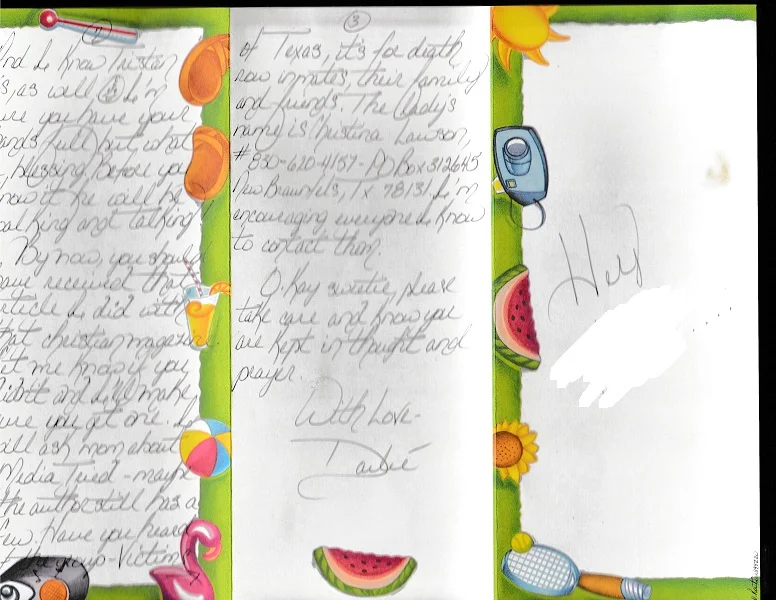 11
And I know Tristan
is, as will
sure you have your
hands full, but what
a blessing. Before you
know it he will be
walking and talking!
By now, you should
have received that
article I did with
that christian magazine
Let me know if you
didn't and I'll make
sure you get one. I
will ask mom about
Media Tried - maybe
the author still has a
few. Have you heard
of the group - Victims
3
of Texas, it's for death
row inmates, their family
and friends. The lady's
name is Christina Lawson,
# 830-620-4157 - PO Box 312645
New Braunfels, Tx 78131. I'm
encouraging everyone I know
to contact them.
O.kay sweetie, please
take care and know you
are kept in thought and
prayer.
With Love -
Darlie
Hey